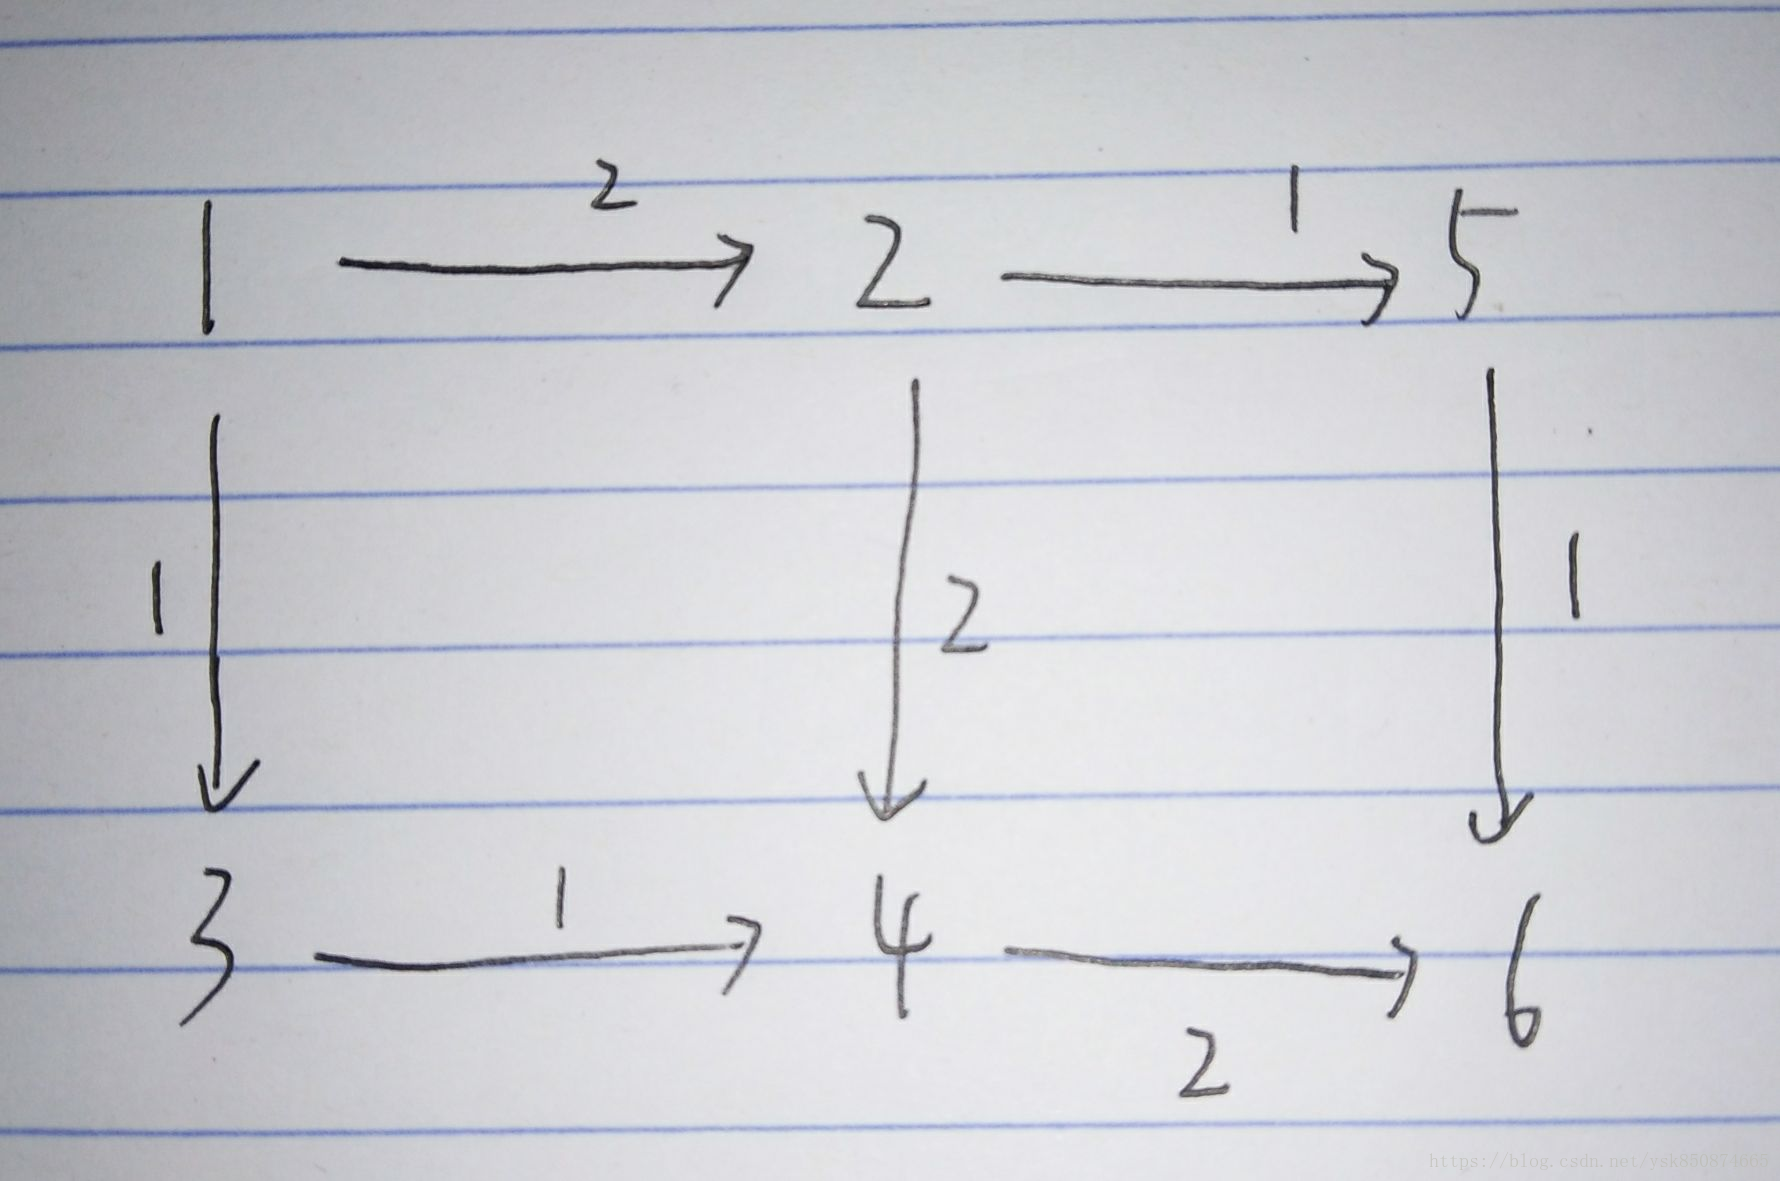 2 1
1 2 5
1 2 1
1
3 4 6
2
https://blog.csdn.net/ysk850874665